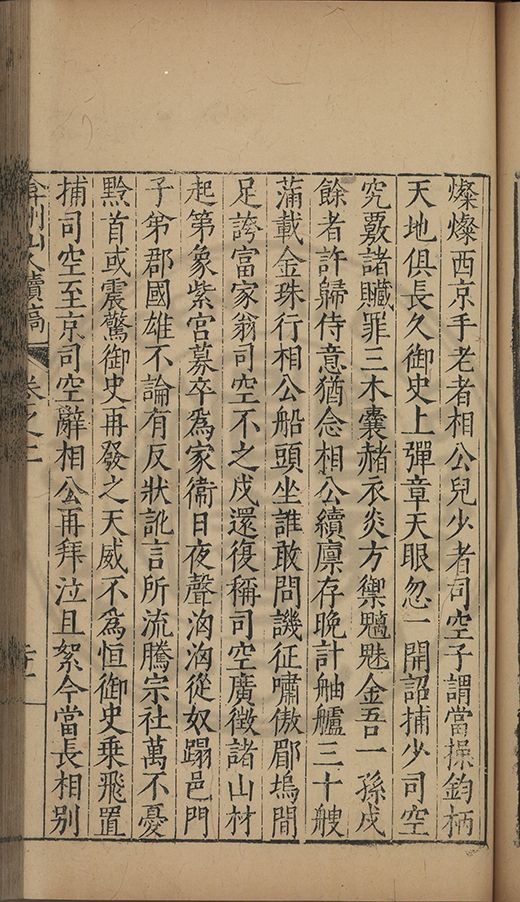 燦燦西京手老者相公兒少者司空子謂當操鈞柄
天地俱長久御史上彈章天眼忽一開詔捕少司空
究覈諸贓罪三木囊赭衣炎方禦魑魅金吾一孫戍
餘者許歸侍意猶念相公續廩存晩計舳艫三十艘
滿載金珠行相公船頭坐誰敢問譏征嘯傲郿塢間
足誇富家翁司空不之戍還復稱司空廣徵諸山材
起第象紫宮募卒爲家衞日夜聲洶洶從奴蹋邑門
子弟郡國雄不論有反狀訛言所流騰宗社萬不憂
黔首或震驚御史再發之天威不爲恒御史乘飛置
捕司空至京司空辭相公再拜泣且絮今當長相別
弇州山人續稿 卷之二